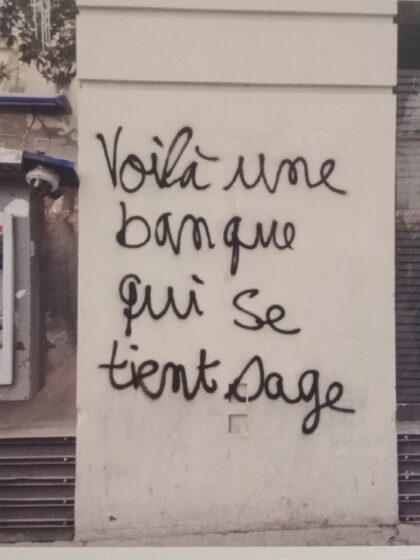 Voilà une
banque
qui se
tient sage